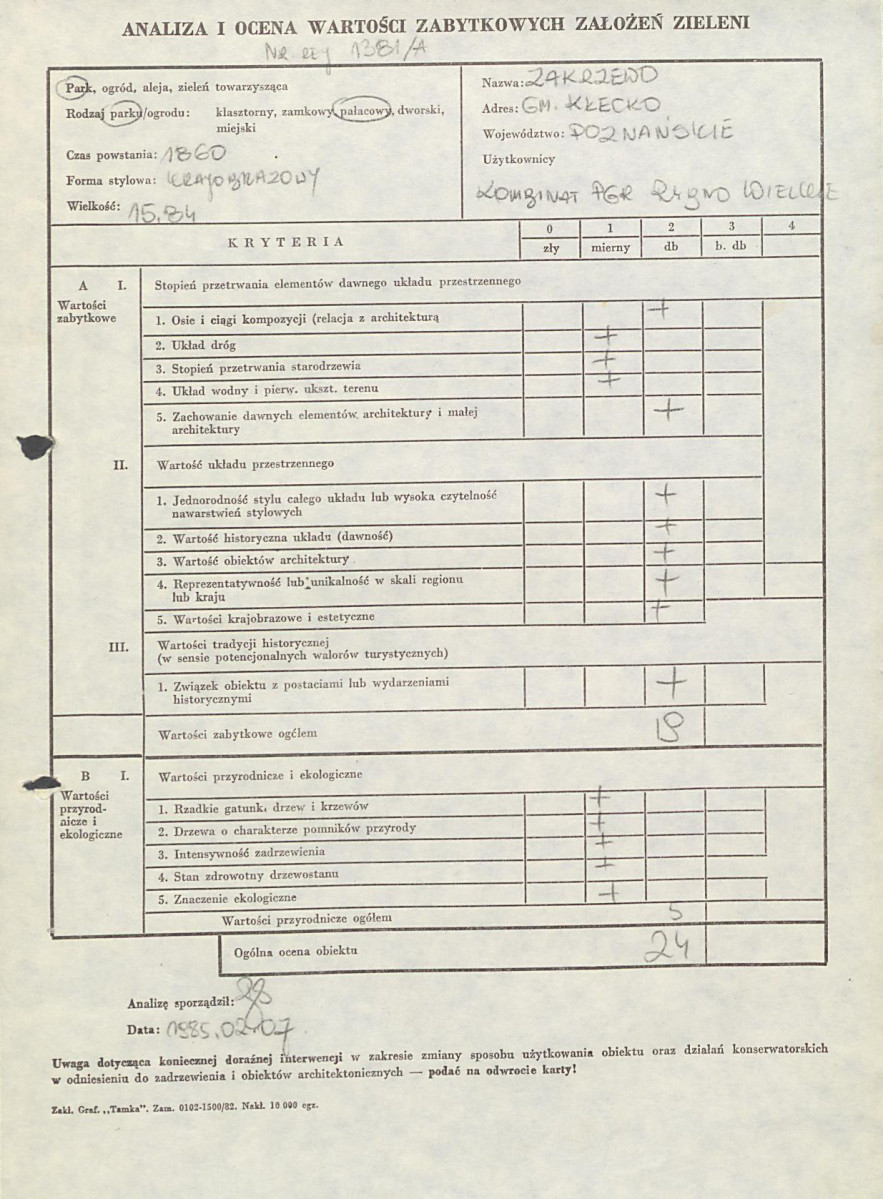 ANALIZA I OCENA WARTOŚCI ZABYTKOWYCH ZAŁOŻEŃ ZIELENI
Nr rej 1381/A
Park, ogród, aleja, zieleń towarzysząca
Rodzaj parku/ogrodu: klasztorny, zamkowy, pałacowy, dworski,
miejski
Czas powstania: 1860
Forma stylowa: KRAJOBRAZOWY
Wielkość: 15.84
Nazwa: ZAKRZEWO
Adres: GM. KŁECKO
Województwo: POZNAŃSKIE
Użytkownicy
KOMBINAT PGR
KRYTERIA
0 1 2 3 4
zły mierny db b. db
A I. Stopień przetrwania elementów dawnego układu przestrzennego
Wartości
zabytkowe
1. Osie i ciągi kompozycji (relacja z architekturą +
2. Układ dróg +
3. Stopień przetrwania starodrzewia +
4. Układ wodny i pierw. ukszt. terenu +
5. Zachowanie dawnych elementów architektury i małej +
architektury
II. Wartość układu przestrzennego
1. Jednorodność stylu całego układu lub wysoka czytelność +
nawarstwień stylowych
2. Wartość historyczna układu (dawność) +
3. Wartość obiektów architektury +
4. Reprezentatywność lub unikalność w skali regionu +
lub kraju
5. Wartości krajobrazowe i estetyczne +
III. Wartości tradycji historycznej
(w sensie potencjonalnych walorów turystycznych)
1. Związek obiektu z postaciami lub wydarzeniami +
historycznymi
Wartości zabytkowe ogółem 19
B I. Wartości przyrodnicze i ekologiczne
Wartości
przyrod-
nicze i
ekologiczne
1. Rzadkie gatunki drzew i krzewów +
2. Drzewa o charakterze pomników przyrody +
3. Intensywność zadrzewienia +
4. Stan zdrowotny drzewostanu +
5. Znaczenie ekologiczne +
Wartości przyrodnicze ogółem 5
Ogólna ocena obiektu 24
Analizę sporządził:
Data: 1985.02.07
Uwaga dotycząca koniecznej doraźnej interwencji w zakresie zmiany sposobu użytkowania obiektu oraz działań konserwatorskich
w odniesieniu do zadrzewienia i obiektów architektonicznych — podać na odwrocie karty!
Zakł. Graf. „Tamka". Zam. 0102-1500/82. Nakł. 10 000 egz.